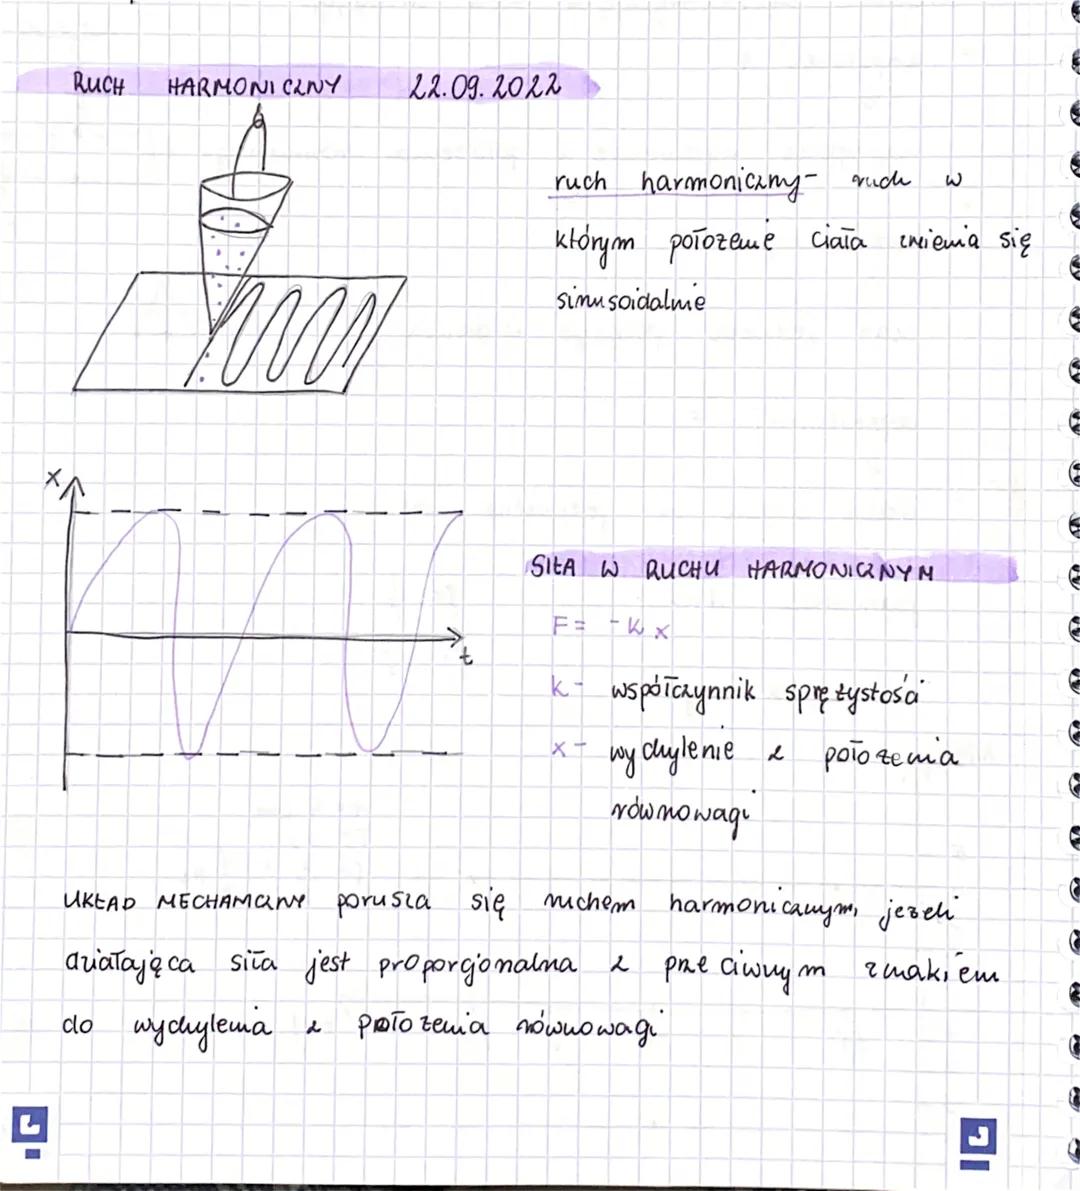 RUCH HARMONICZNY 22.09.2022
ruch harmoniczny- ruch w
którym położenie ciała zmienia się
sinusoidalnie
x
t
SIŁA W RUCHU HARMONICZNYM
F = -kx
k- współczynnik sprężystości
x- wychylenie z położenia
równowagi
UKŁAD MECHANICZNY porusza się ruchem harmonicznym, jeżeli
działająca siła jest proporcjonalna z przeciwnym znakiem
do wychylenia z położenia równowagi